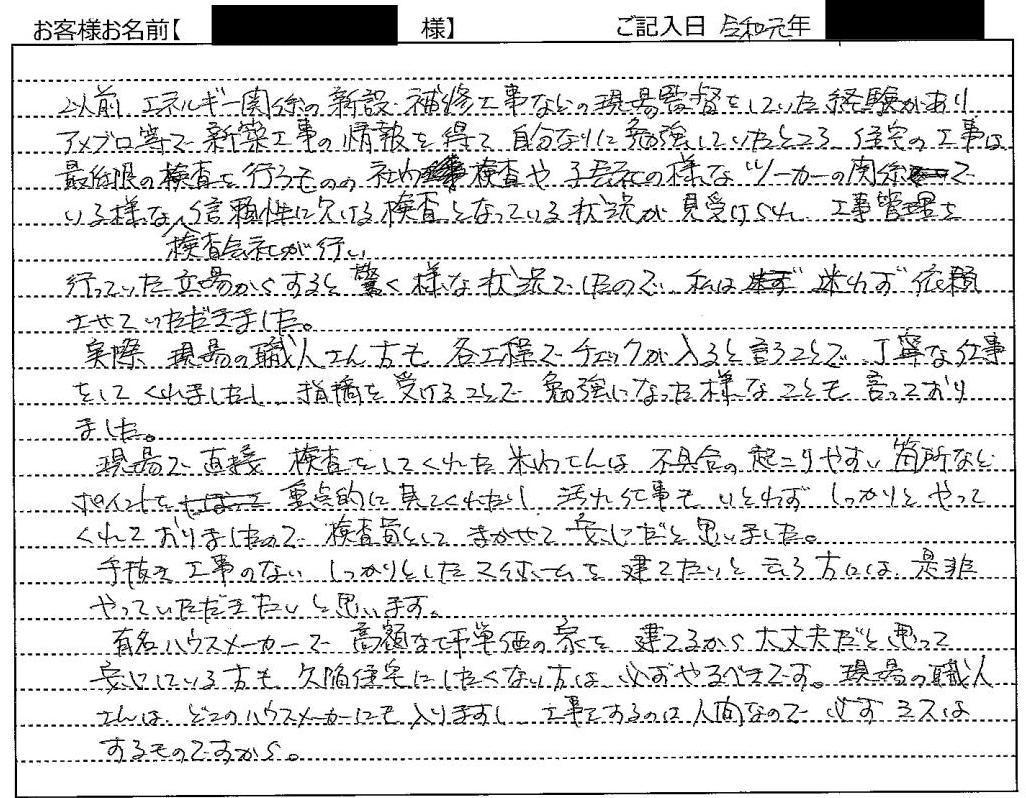 お客様お名前【 様】 ご記入日 令和元年
以前 エネルギー関係の新設・補修工事などの現場監督をしていた経験があり
アメブロ等で新築工事の情報を得て自分なりに勉強していたところ、住宅の工事は
最低限の検査を行うものの社内検査や子会社の様なツーカーの関係で
いる様な信頼性に欠ける検査となっている状況が見受けられ、工事管理を
検査会社が行い
行っていた立場からすると驚く様な状況でしたので、私は 迷わず依頼
させていただきました。
実際 現場の職人さん方も各工程でチェックが入ると言うことで、丁寧な仕事
をしてくれましたし、指摘を受けることで勉強になった様なことも言っており
ました。
現場で直接 検査をしてくれた さんは、不具合の起こりやすい箇所など
ポイントを 重点的に見てくれたり、汚れ仕事もいとわず しっかりとやって
くれておりましたので、検査員として まかせて安心だと思いました。
手抜き工事のない しっかりとしたマイホームを建てたいと言う方には、是非
やっていただきたいと思います。
有名ハウスメーカーで 高額な坪単価の家を建てるから大丈夫だと思って
安心している方も、欠陥住宅にしたくない方は、必ずやるべきです。現場の職人
さんは、どこのハウスメーカーにも入りますし、工事をするのは人間なので必ずミスは
するものですから。